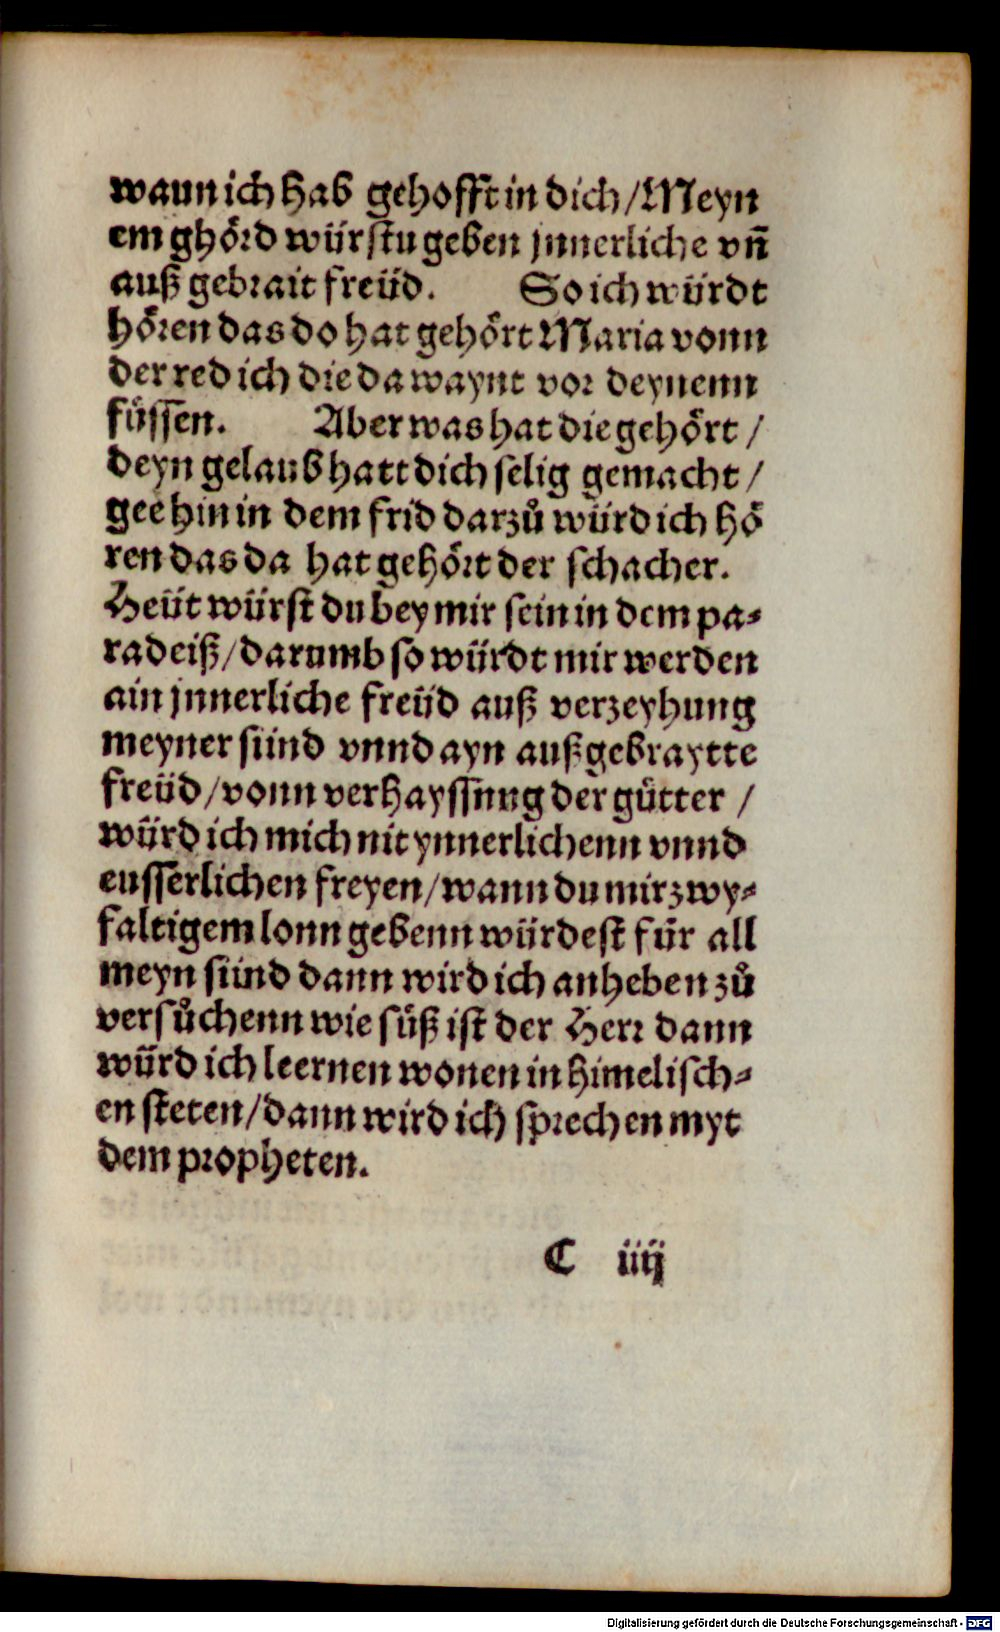 waun ich hab gehofft in dich / Meyn
em ghörd würstu geben jnnerliche vn̄
auß gebrait freüd. So ich würdt
hören das do hat gehört Maria vonn
der red ich die da waynt vor deynenn
füssen. Aber was hat die gehört /
deyn gelaub hatt dich selig gemacht /
gee hin in dem frid darzů würd ich hö
ren das da hat gehört der schacher.
Heüt würst du bey mir sein in dem pa⸗
radeiß / darumb so würdt mir werden
ain jnnerliche freüd auß verzeyhung
meyner sünd vnnd ayn außgebraytte
freüd / vonn verhayssung der gütter /
würd ich mich nit ynnerlichenn vnnd
eusserlichen freyen / wann du mir zwy⸗
faltigem lonn gebenn würdest für all
meyn sünd dann wird ich anheben zů
versůchenn wie süß ist der Herr dann
würd ich leernen wonen in himelisch⸗
en steten / dann wird ich sprechen myt
dem propheten.
C iiij
Digitalisierung gefördert durch die Deutsche Forschungsgemeinschaft - DFG